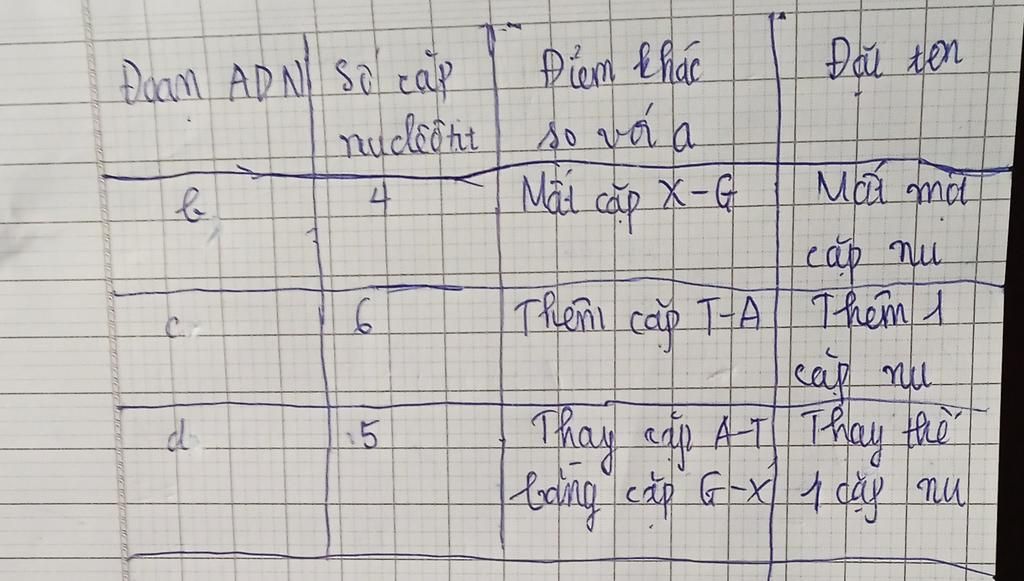 Đoạn ADN Số cặp Điểm khác Đặt tên
nuclêôtit so với a
b 4 Mất cặp X-G Mất một
cặp nu
c 6 Thêm cặp T-A Thêm 1
cặp nu
d 5 Thay cặp A-T Thay thế
bằng cặp G-X 1 cặp nu